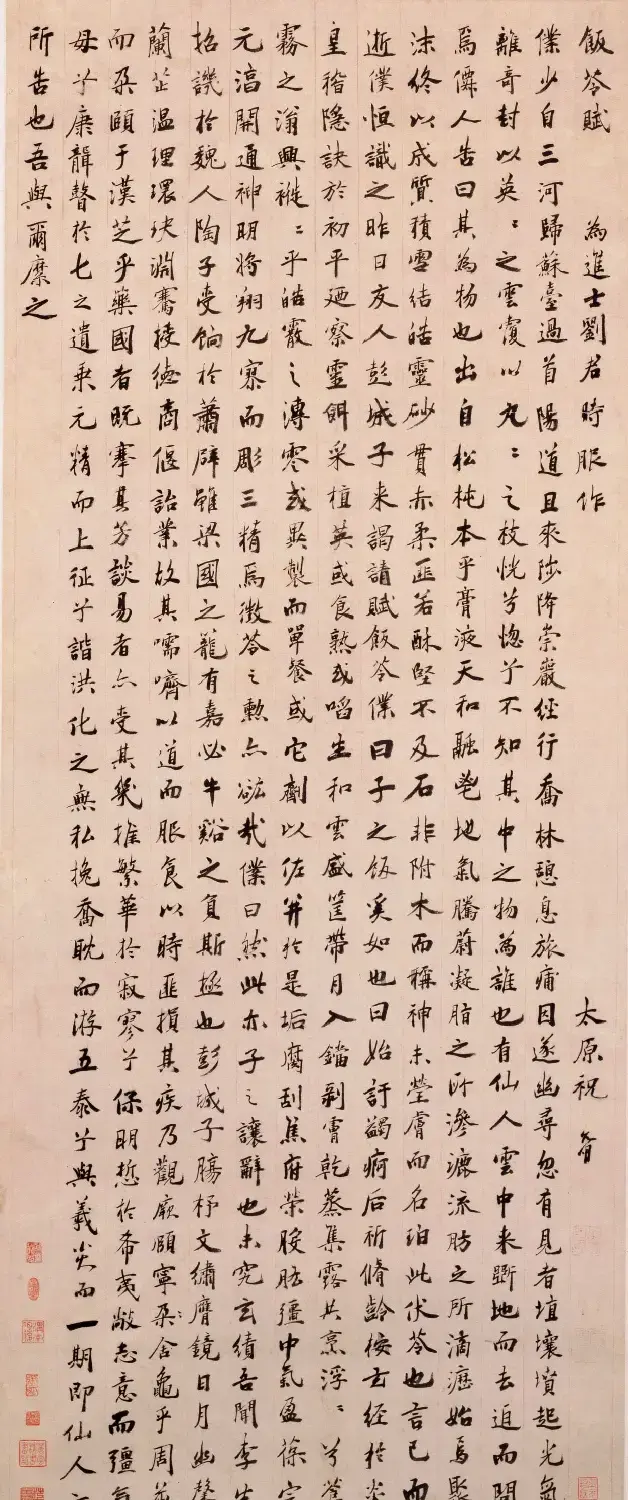 飯苓賦 為進士劉君時服作 太原祝
僕少自三河歸蘇臺過首陽道且來陟降崇巖經行喬林憩息旅痡因遂幽尋忽有見者埴壤墳起光氣
離奇封以英〻之雲覆以丸〻之枝恍兮惚兮不知其中之物為誰也有仙人雲中来斸地而去追而問
焉僊人告曰其為物也出自松杶本乎膏液天和融鬯地氣騰蔚凝脂之所滲漉流肪之所滴瀝始焉聚
沫終以成質積雪結皓靈砂貫赤柔匪若酥堅不及石非附木而稱神未瑩膚而名珀此伏苓也言已而
逝僕恒識之昨日友人彭城子来謁請賦飯苓僕曰子之飯奚如也曰始訏蠲痾后祈脩齡桉玄經於炎
皇稽隱訣於初平廼察靈餌采植英或食熟或啗生和雲盛筐帶月入鐺剝膚乾蒸集露共烹浮〻兮
霧之滃興褷〻乎皓霰之漙零或異製而單餐或它劑以佐并於是垢腐刮焦府榮胺肪彊中氣盈葆
元滀開通神明將翔九寮而彫三精焉微苓之勲亦谹哉僕曰然此亦子之讓辭也未究玄績吾聞季
招譏於魏人陶子受餉於蕭辟雖梁國之寵有嘉必牛谿之負斯極也彭城子腸杼文繡膺鏡日月幽
蘭芷温理環玦淵騫接德商偃詒業故其嚅嚌以道而服食以時匪損其疾乃觀厥頤寧朶舍龜乎周
而朶頤于漢芝乎藥國者既搴其芳談易者亦受其幾摧繁華於寂寥兮保明悊於希夷敞志意而彊
毋兮康韻聲於七之遺乗元精而上征兮諧洪化之無私挽喬耽而游五泰兮與羲炎而一期即仙人
所告也吾與爾縻之